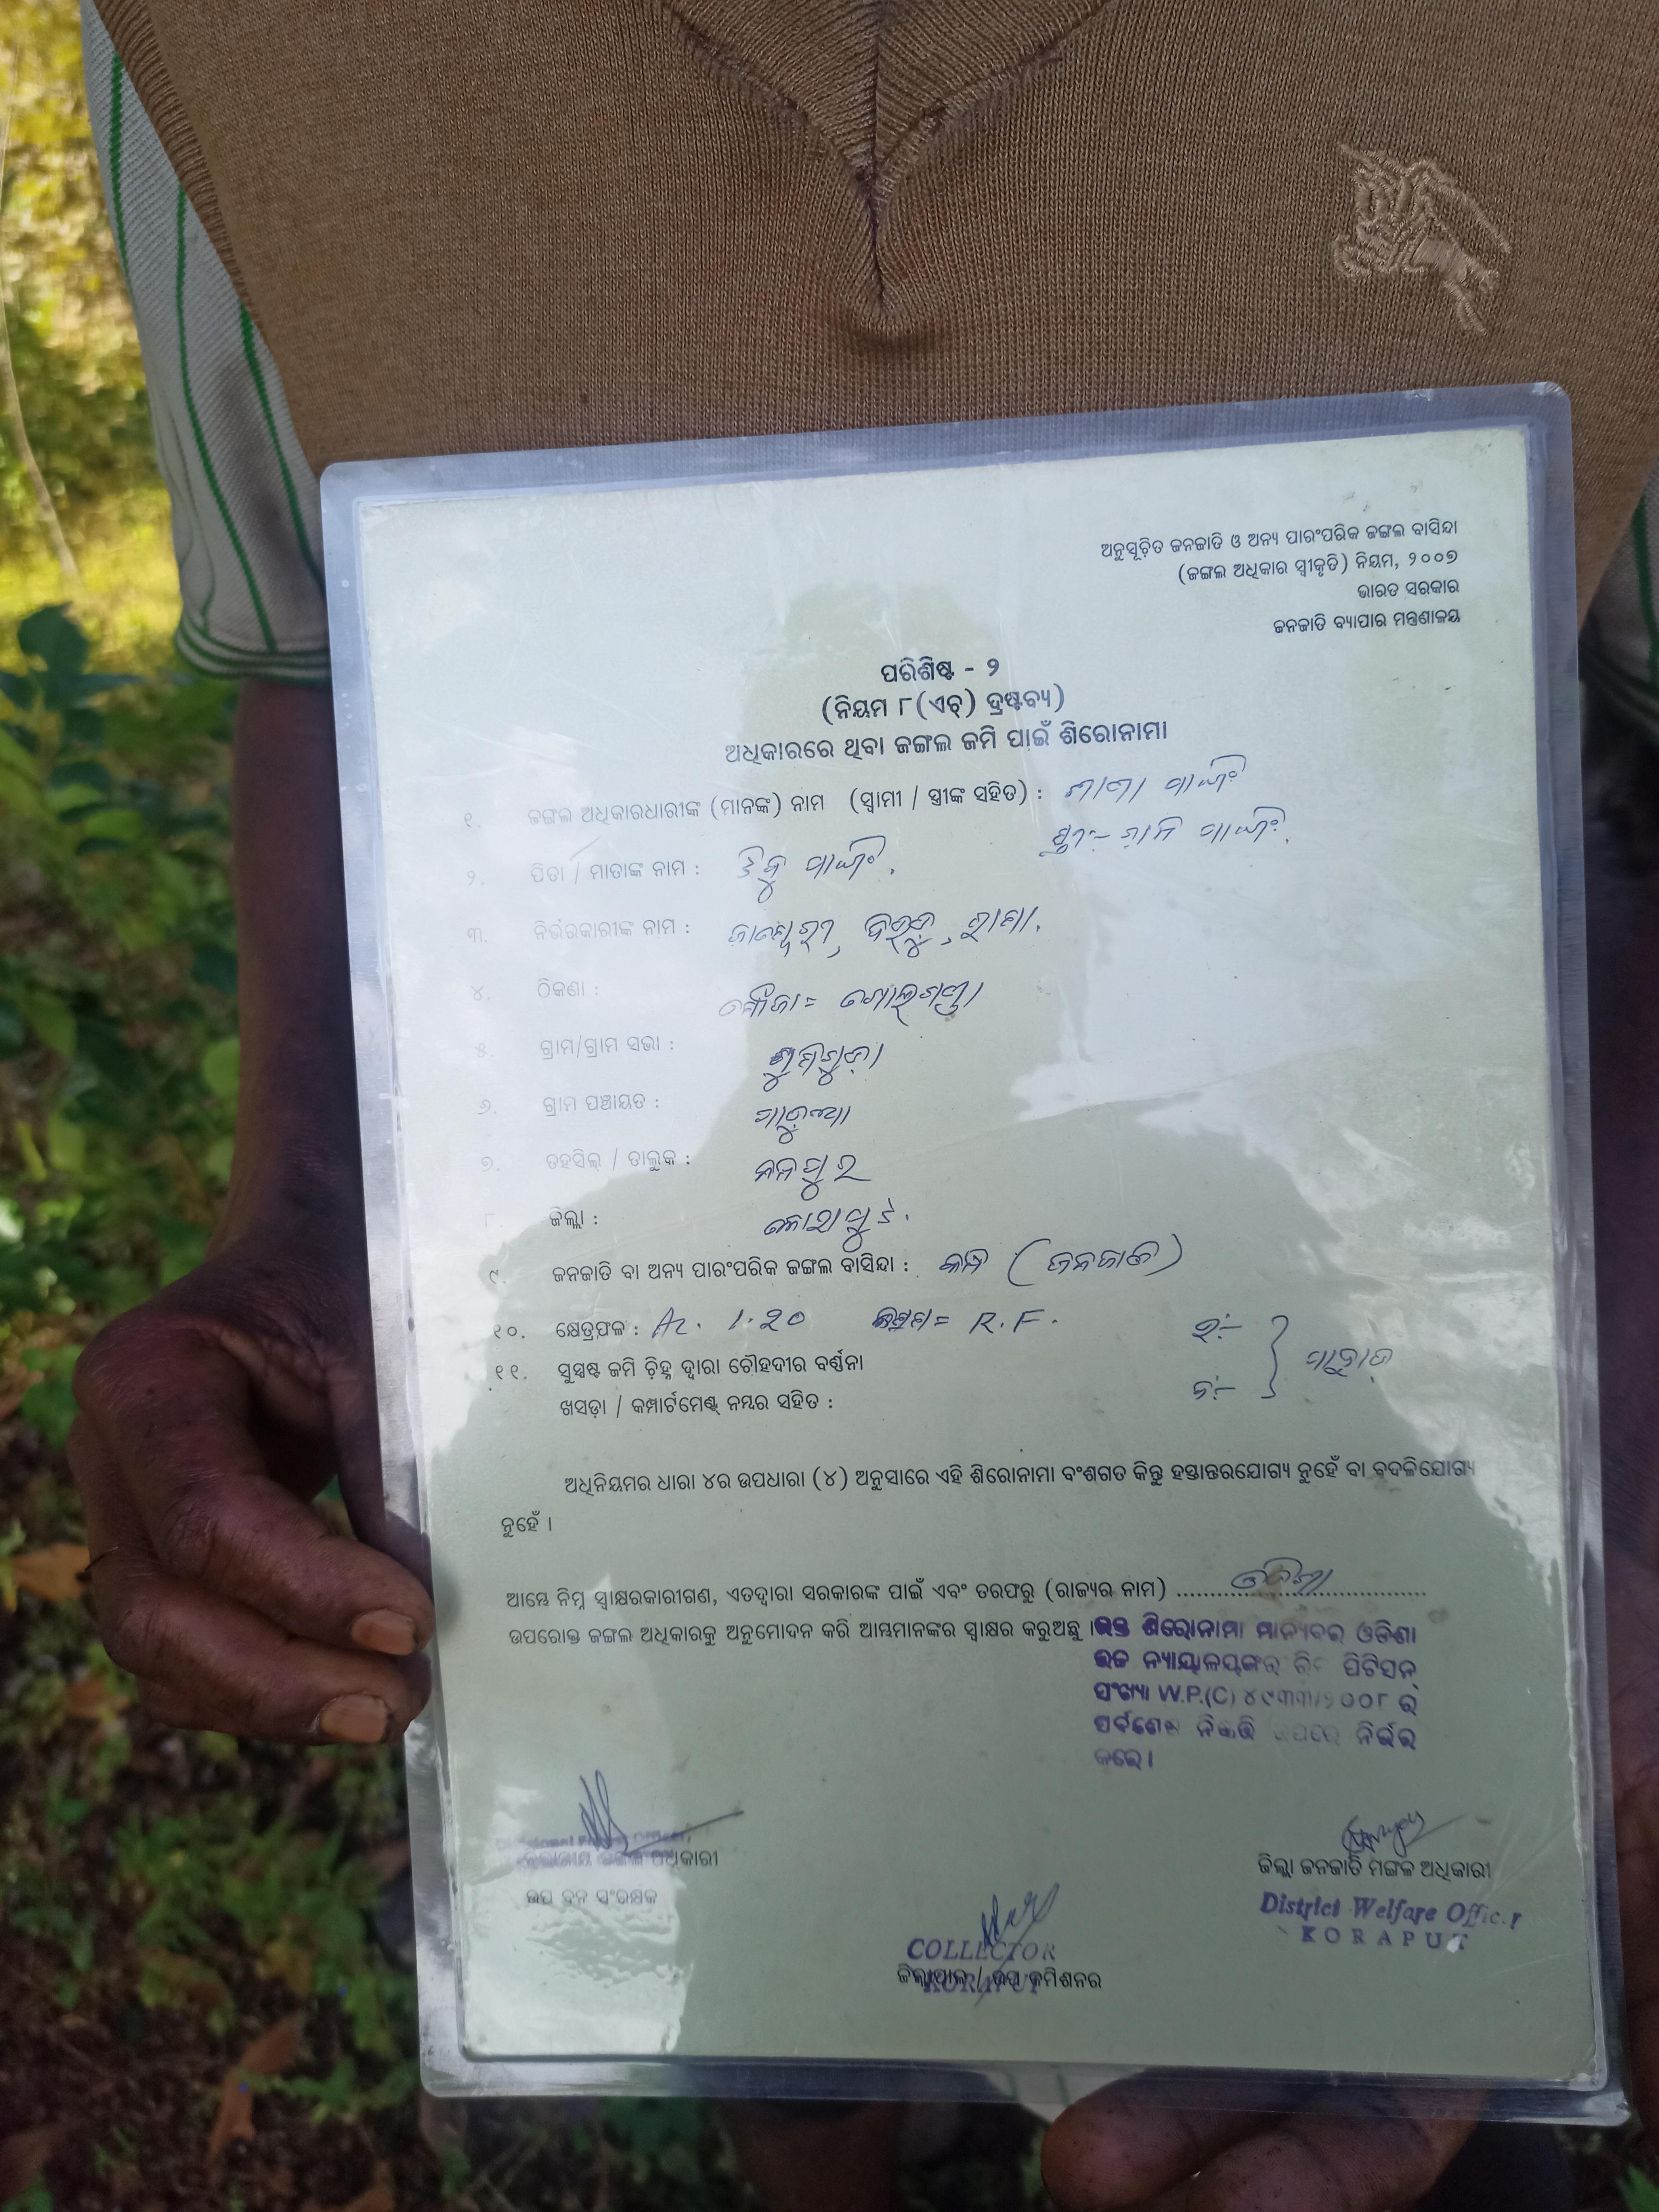 ଅନୁସୂଚିତ ଜନଜାତି ଓ ଅନ୍ୟ ପାରଂପରିକ ଜଙ୍ଗଲ ବାସିନ୍ଦା
(ଜଙ୍ଗଲ ଅଧିକାର ସ୍ୱୀକୃତି) ନିୟମ, ୨୦୦୭
ଭାରତ ସରକାର
ଜନଜାତି ବ୍ୟାପାର ମନ୍ତ୍ରଣାଳୟ
ପରିଶିଷ୍ଟ - ୨
(ନିୟମ ୮(ଏଚ୍) ଦ୍ରଷ୍ଟବ୍ୟ)
ଅଧିକାରରେ ଥିବା ଜଙ୍ଗଲ ଜମି ପାଇଁ ଶିରୋନାମା
୧. ଜଙ୍ଗଲ ଅଧିକାରଧାରୀଙ୍କ (ମାନଙ୍କ) ନାମ (ସ୍ୱାମୀ / ସ୍ତ୍ରୀଙ୍କ ସହିତ) :
୨. ପିତା / ମାତାଙ୍କ ନାମ :
୩. ନିର୍ଭରକାରୀଙ୍କ ନାମ :
୪. ଠିକଣା : ମୌଜା=
୫. ଗ୍ରାମ/ଗ୍ରାମ ସଭା :
୬. ଗ୍ରାମ ପଞ୍ଚାୟତ : ପାଡୁଆ
୭. ତହସିଲ୍ / ତାଲୁକ : ନନ୍ଦପୁର
୮. ଜିଲ୍ଲା : କୋରାପୁଟ.
୯. ଜନଜାତି ବା ଅନ୍ୟ ପାରଂପରିକ ଜଙ୍ଗଲ ବାସିନ୍ଦା : (ଜନଜାତି)
୧୦. କ୍ଷେତ୍ରଫଳ : Ac. 1.20 R.F.
୧୧. ସୁସ୍ପଷ୍ଟ ଜମି ଚିହ୍ନ ଦ୍ୱାରା ଚୌହଦୀର ବର୍ଣ୍ଣନା
ଖସଡ଼ା / କମ୍ପାର୍ଟମେଣ୍ଟ୍ ନମ୍ବର ସହିତ :
ଅଧିନିୟମର ଧାରା ୪ର ଉପଧାରା (୪) ଅନୁସାରେ ଏହି ଶିରୋନାମା ବଂଶଗତ କିନ୍ତୁ ହସ୍ତାନ୍ତରଯୋଗ୍ୟ ନୁହେଁ ବା ବଦଳିଯୋଗ୍ୟ
ନୁହେଁ ।
ଆମ୍ଭେ ନିମ୍ନ ସ୍ୱାକ୍ଷରକାରୀଗଣ, ଏତଦ୍ୱାରା ସରକାରଙ୍କ ପାଇଁ ଏବଂ ତରଫରୁ (ରାଜ୍ୟର ନାମ) ଓଡିଶା
ଉପରୋକ୍ତ ଜଙ୍ଗଲ ଅଧିକାରକୁ ଅନୁମୋଦନ କରି ଆମ୍ଭମାନଙ୍କର ସ୍ୱାକ୍ଷର କରୁଅଛୁ ।
ଉକ୍ତ ଶିରୋନାମା ମାନ୍ୟବର ଓଡିଶା
ଉଚ୍ଚ ନ୍ୟାୟାଳୟଙ୍କର ରିଟ ପିଟିସନ୍
ସଂଖ୍ୟା W.P.(C) ୪୯୩୩/୨୦୦୮ ର
ସର୍ବଶେଷ ନିଷ୍ପତ୍ତି ଉପରେ ନିର୍ଭର
କରେ ।
Divisional Forest Officer,
ଅଧିକାରୀ
ଉପ ବନ ସଂରକ୍ଷକ
ଜିଲ୍ଲା ଜନଜାତି ମଙ୍ଗଳ ଅଧିକାରୀ
District Welfare Officer
KORAPUT
COLLECTOR
ଜିଲ୍ଲାପାଳ / ଉପ କମିଶନର
KORAPUT